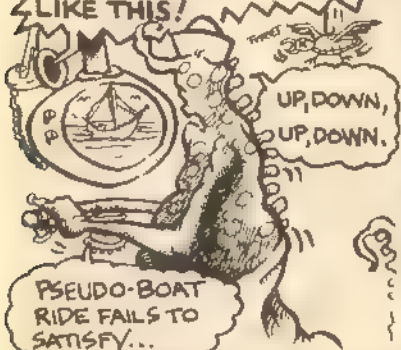 LIKE THIS!
UP, DOWN,
UP, DOWN.
PSEUDO-BOAT
RIDE FAILS TO
SATISFY...